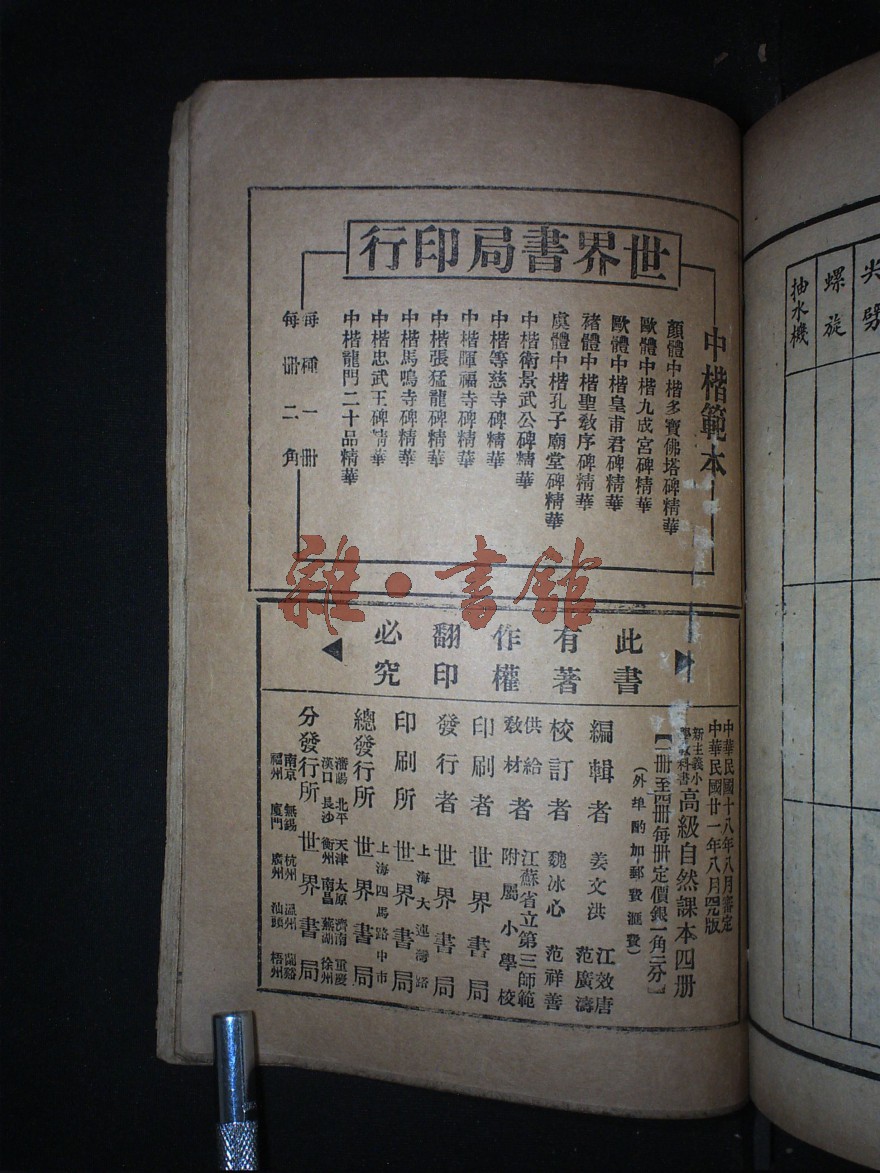 世界書局印行
中楷範本
顏體中楷多寶佛塔碑精華
歐體中楷九成宮碑精華
歐體中楷皇甫君碑精華
褚體中楷聖教序碑精華
虞體中楷孔子廟堂碑精華
中楷衛景武公碑精華
中楷等慈寺碑精華
中楷暉福寺碑精華
中楷張猛龍碑精華
中楷馬鳴寺碑精華
中楷忠武王碑精華
中楷龍門二十品精華
每種一冊
每冊二角
此書有著作權翻印必究
中華民國十八年八月審定
中華民國廿一年八月四〇版
新主義小學教科書高級自然課本四册
【一冊至四冊每冊定價銀一角三分】
(外埠酌加郵費滙費)
編輯者 姜文洪 江效唐 范廣濤
校訂者 魏冰心 范祥善
供給教材者 江蘇省立第三師範附屬小學校
印刷者 世界書局
發行者 世界書局
印刷所 上海大連灣路 世界書局
總發行所 上海四馬路中市 世界書局
分發行所 世界書局
瀋陽 北平 天津 太原 濟南 重慶
漢口 長沙 衡州 南昌 蕪湖 徐州
南京 無錫 杭州 溫州 蘭谿
福州 廈門 廣州 汕頭 梧州
雜·書館
螺旋
抽水機